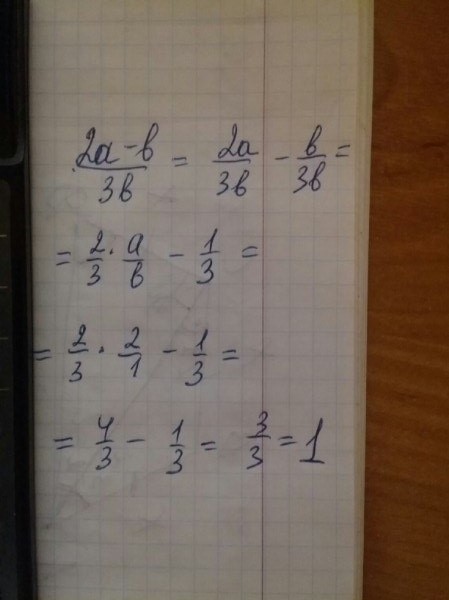 (2a-b)/3b = 2a/3b - b/3b =
= 2/3 · a/b - 1/3 =
= 2/3 · 2/1 - 1/3 =
= 4/3 - 1/3 = 3/3 = 1